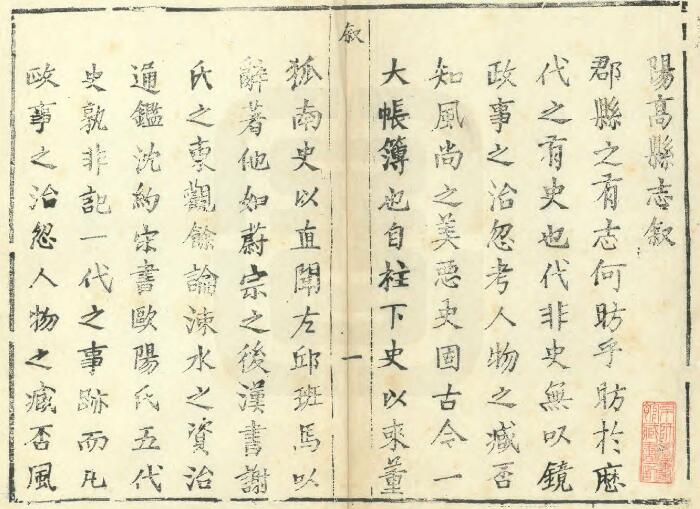 陽高縣志叙
郡縣之有志何昉乎昉於歷
代之有史也代非史無以鏡
政事之治忽考人物之臧否
知風尚之美惡史固古今一
大帳簿也自柱下史以來董
叙
一
狐南史以直聞左邱班馬以
辭著他如蔚宗之後漢書謝
氏之東觀餘論涑水之資治
通鑑沈約宋書歐陽氏五代
史孰非記一代之事跡而凡
政事之治忽人物之臧否風